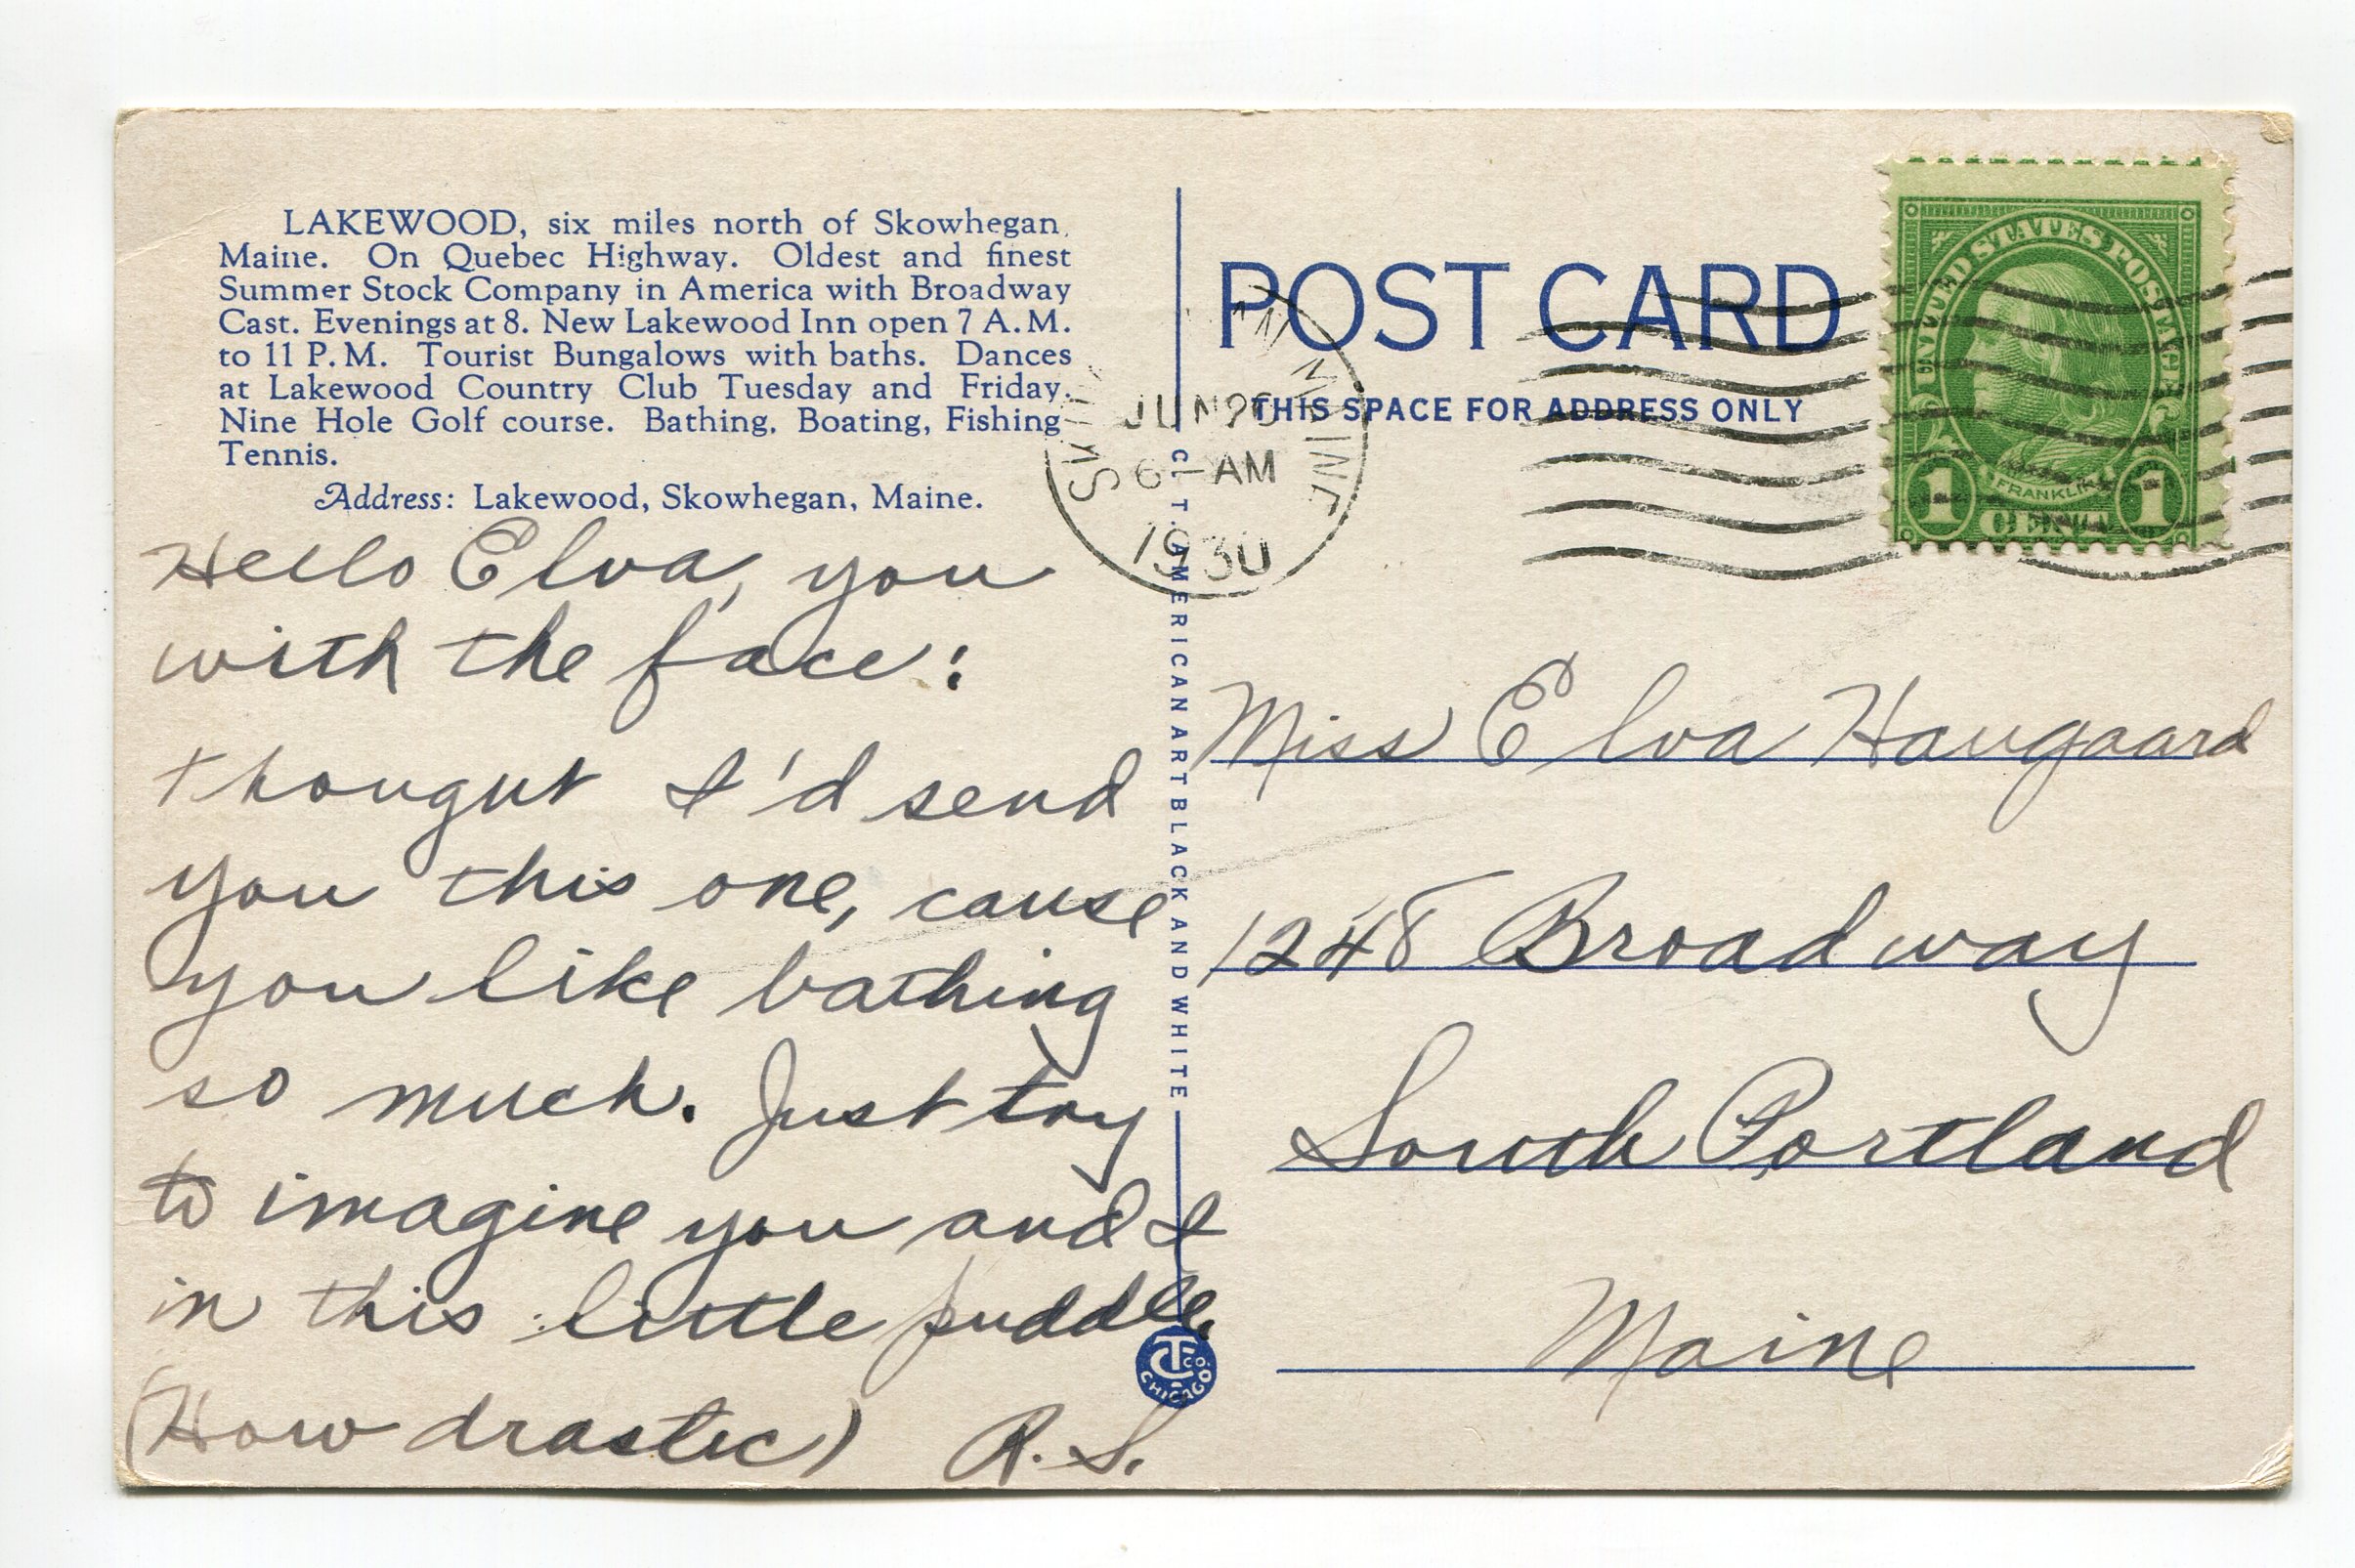 LAKEWOOD, six miles north of Skowhegan,
Maine. On Quebec Highway. Oldest and finest
Summer Stock Company in America with Broadway
Cast. Evenings at 8. New Lakewood Inn open 7 A.M.
to 11 P.M. Tourist Bungalows with baths. Dances
at Lakewood Country Club Tuesday and Friday.
Nine Hole Golf course. Bathing, Boating, Fishing
Tennis.
Address: Lakewood, Skowhegan, Maine.
Hello Elva, you
with the face:
thought I'd send
you this one, cause
you like bathing
so much. Just try
to imagine you and I
in this little puddle.
(How drastic) R.S.
C. T. AMERICAN ART BLACK AND WHITE
CT CO. CHICAGO
POST CARD
THIS SPACE FOR ADDRESS ONLY
MAINE
JUN
6 - AM
1930
UNITED STATES POSTAGE
FRANKLIN
1 CENT 1
Miss Elva Haugaard
1248 Broadway
South Portland
Maine